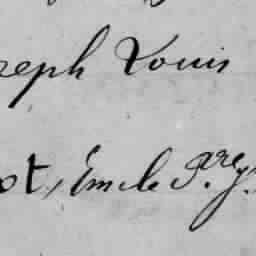 reph Louis
ot, Emile P.